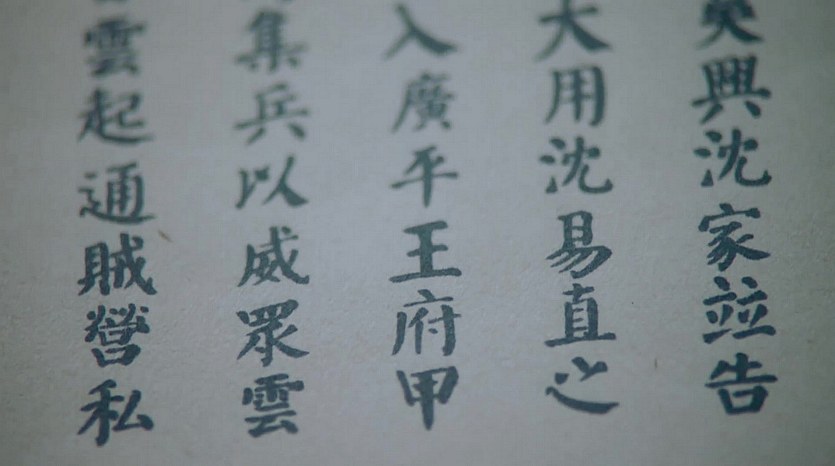 興沈家竝告
大用沈易直之
入廣平王府甲
集兵以威眾雲
雲起通賊營私